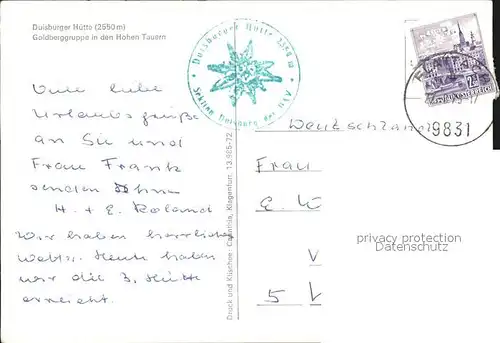 Duisburger Hütte (2550 m)
Goldberggruppe in den Hohen Tauern
Duisburger Hütte 2550 m
Sektion Duisburg des ÖAV
9831
Deutschland
liebe
Urlaubsgrüße
an Sie und
Frau Frank
senden Ihnen
H. + E. Roland
Wir haben herrliches
Wetter. Heute haben
wir die 3. Hütte
erreicht.
Druck und Klischee: Carinthia, Klagenfurt. 13.985-72
Frau
E. K
V
5 V
privacy protection
Datenschutz